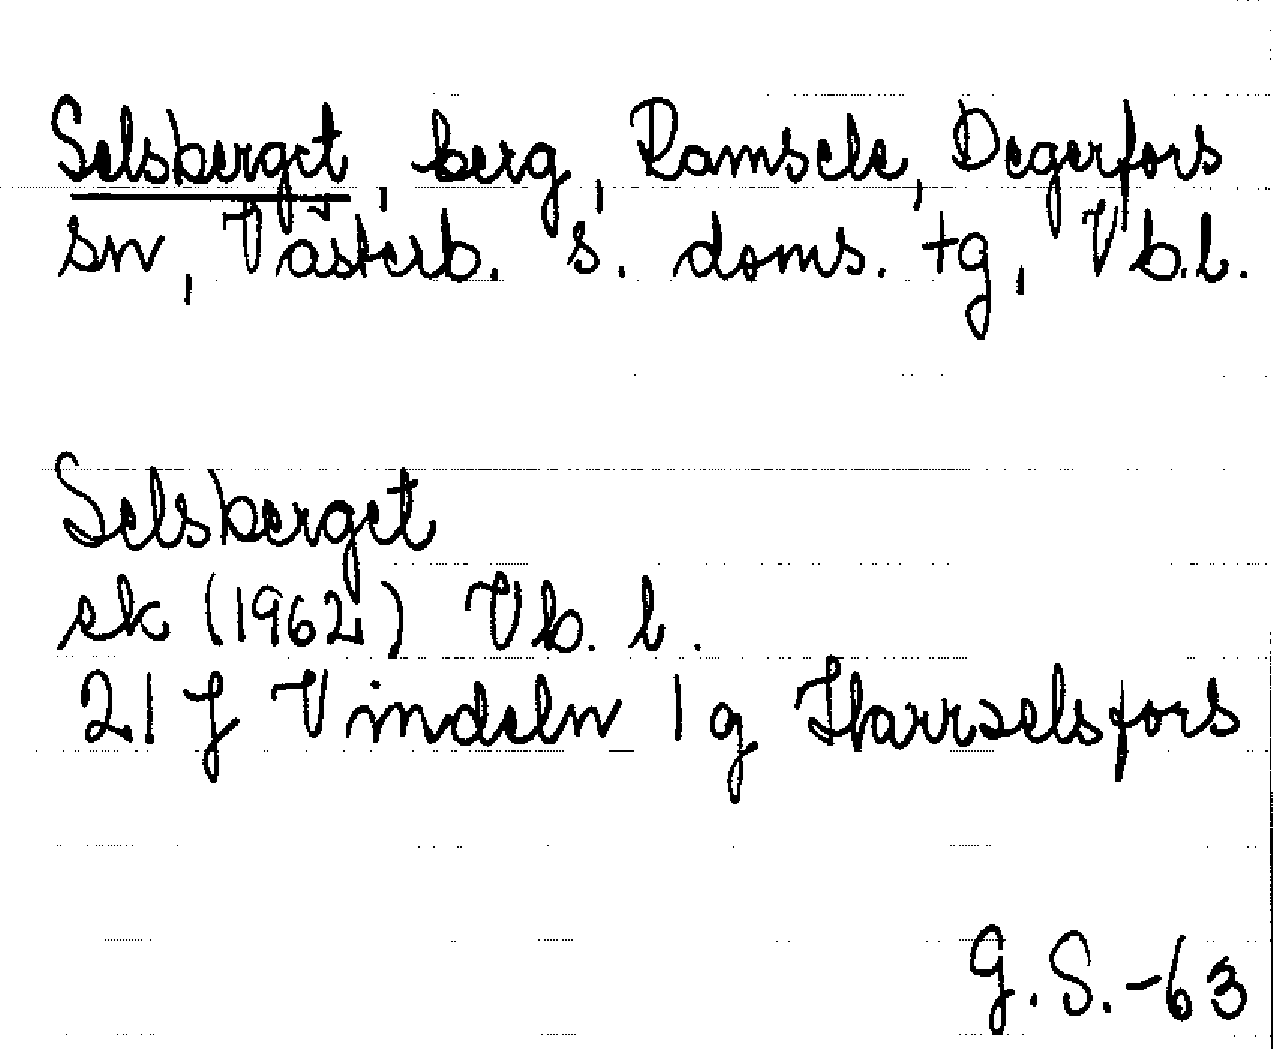 Selsberget, berg, Ramsele, Degerfors
sn, Västerb. s. doms. tg, Vb.l.
Selsberget
ek (1962) Vb. l.
21 J Vindeln 1 g Harrselsfors
G.S.-63